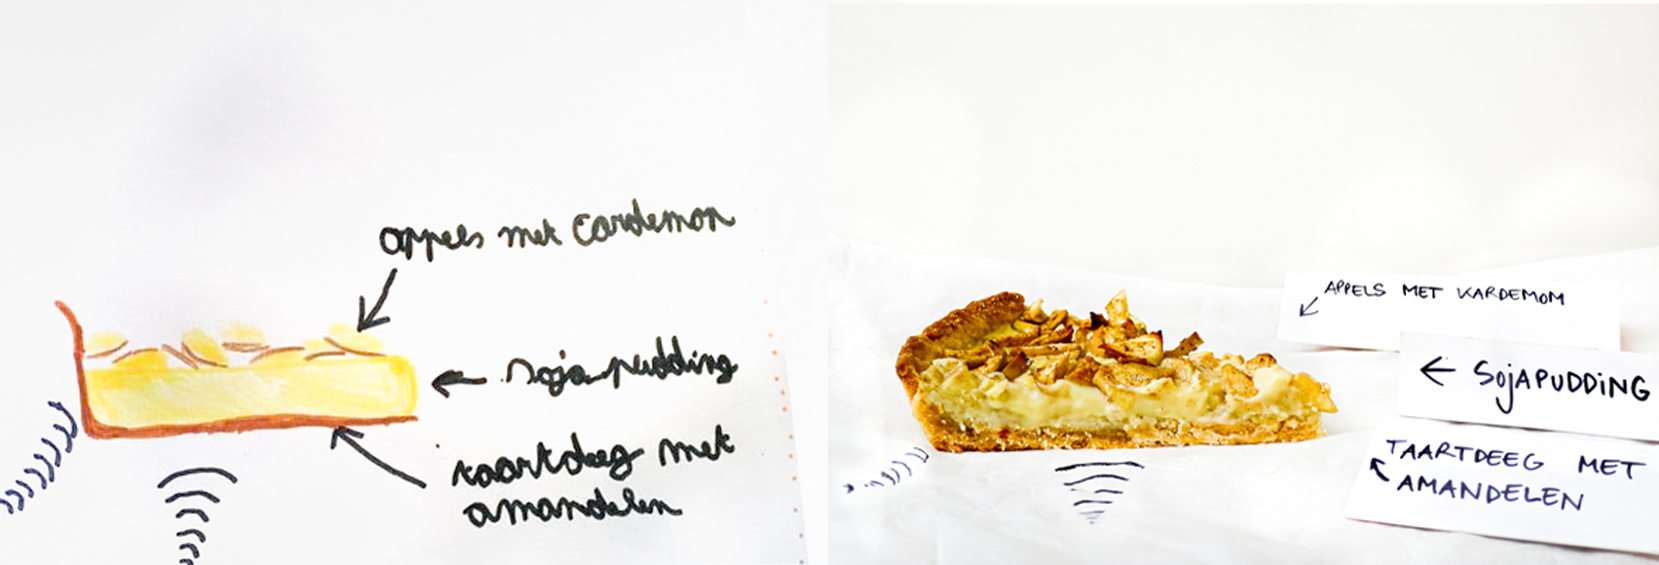 appels met cardemon
soja pudding
taartdeeg met
amandelen
APPELS MET KARDEMOM
SOjAPUDDiNG
TAARTDEEG MET
AMANDELEN